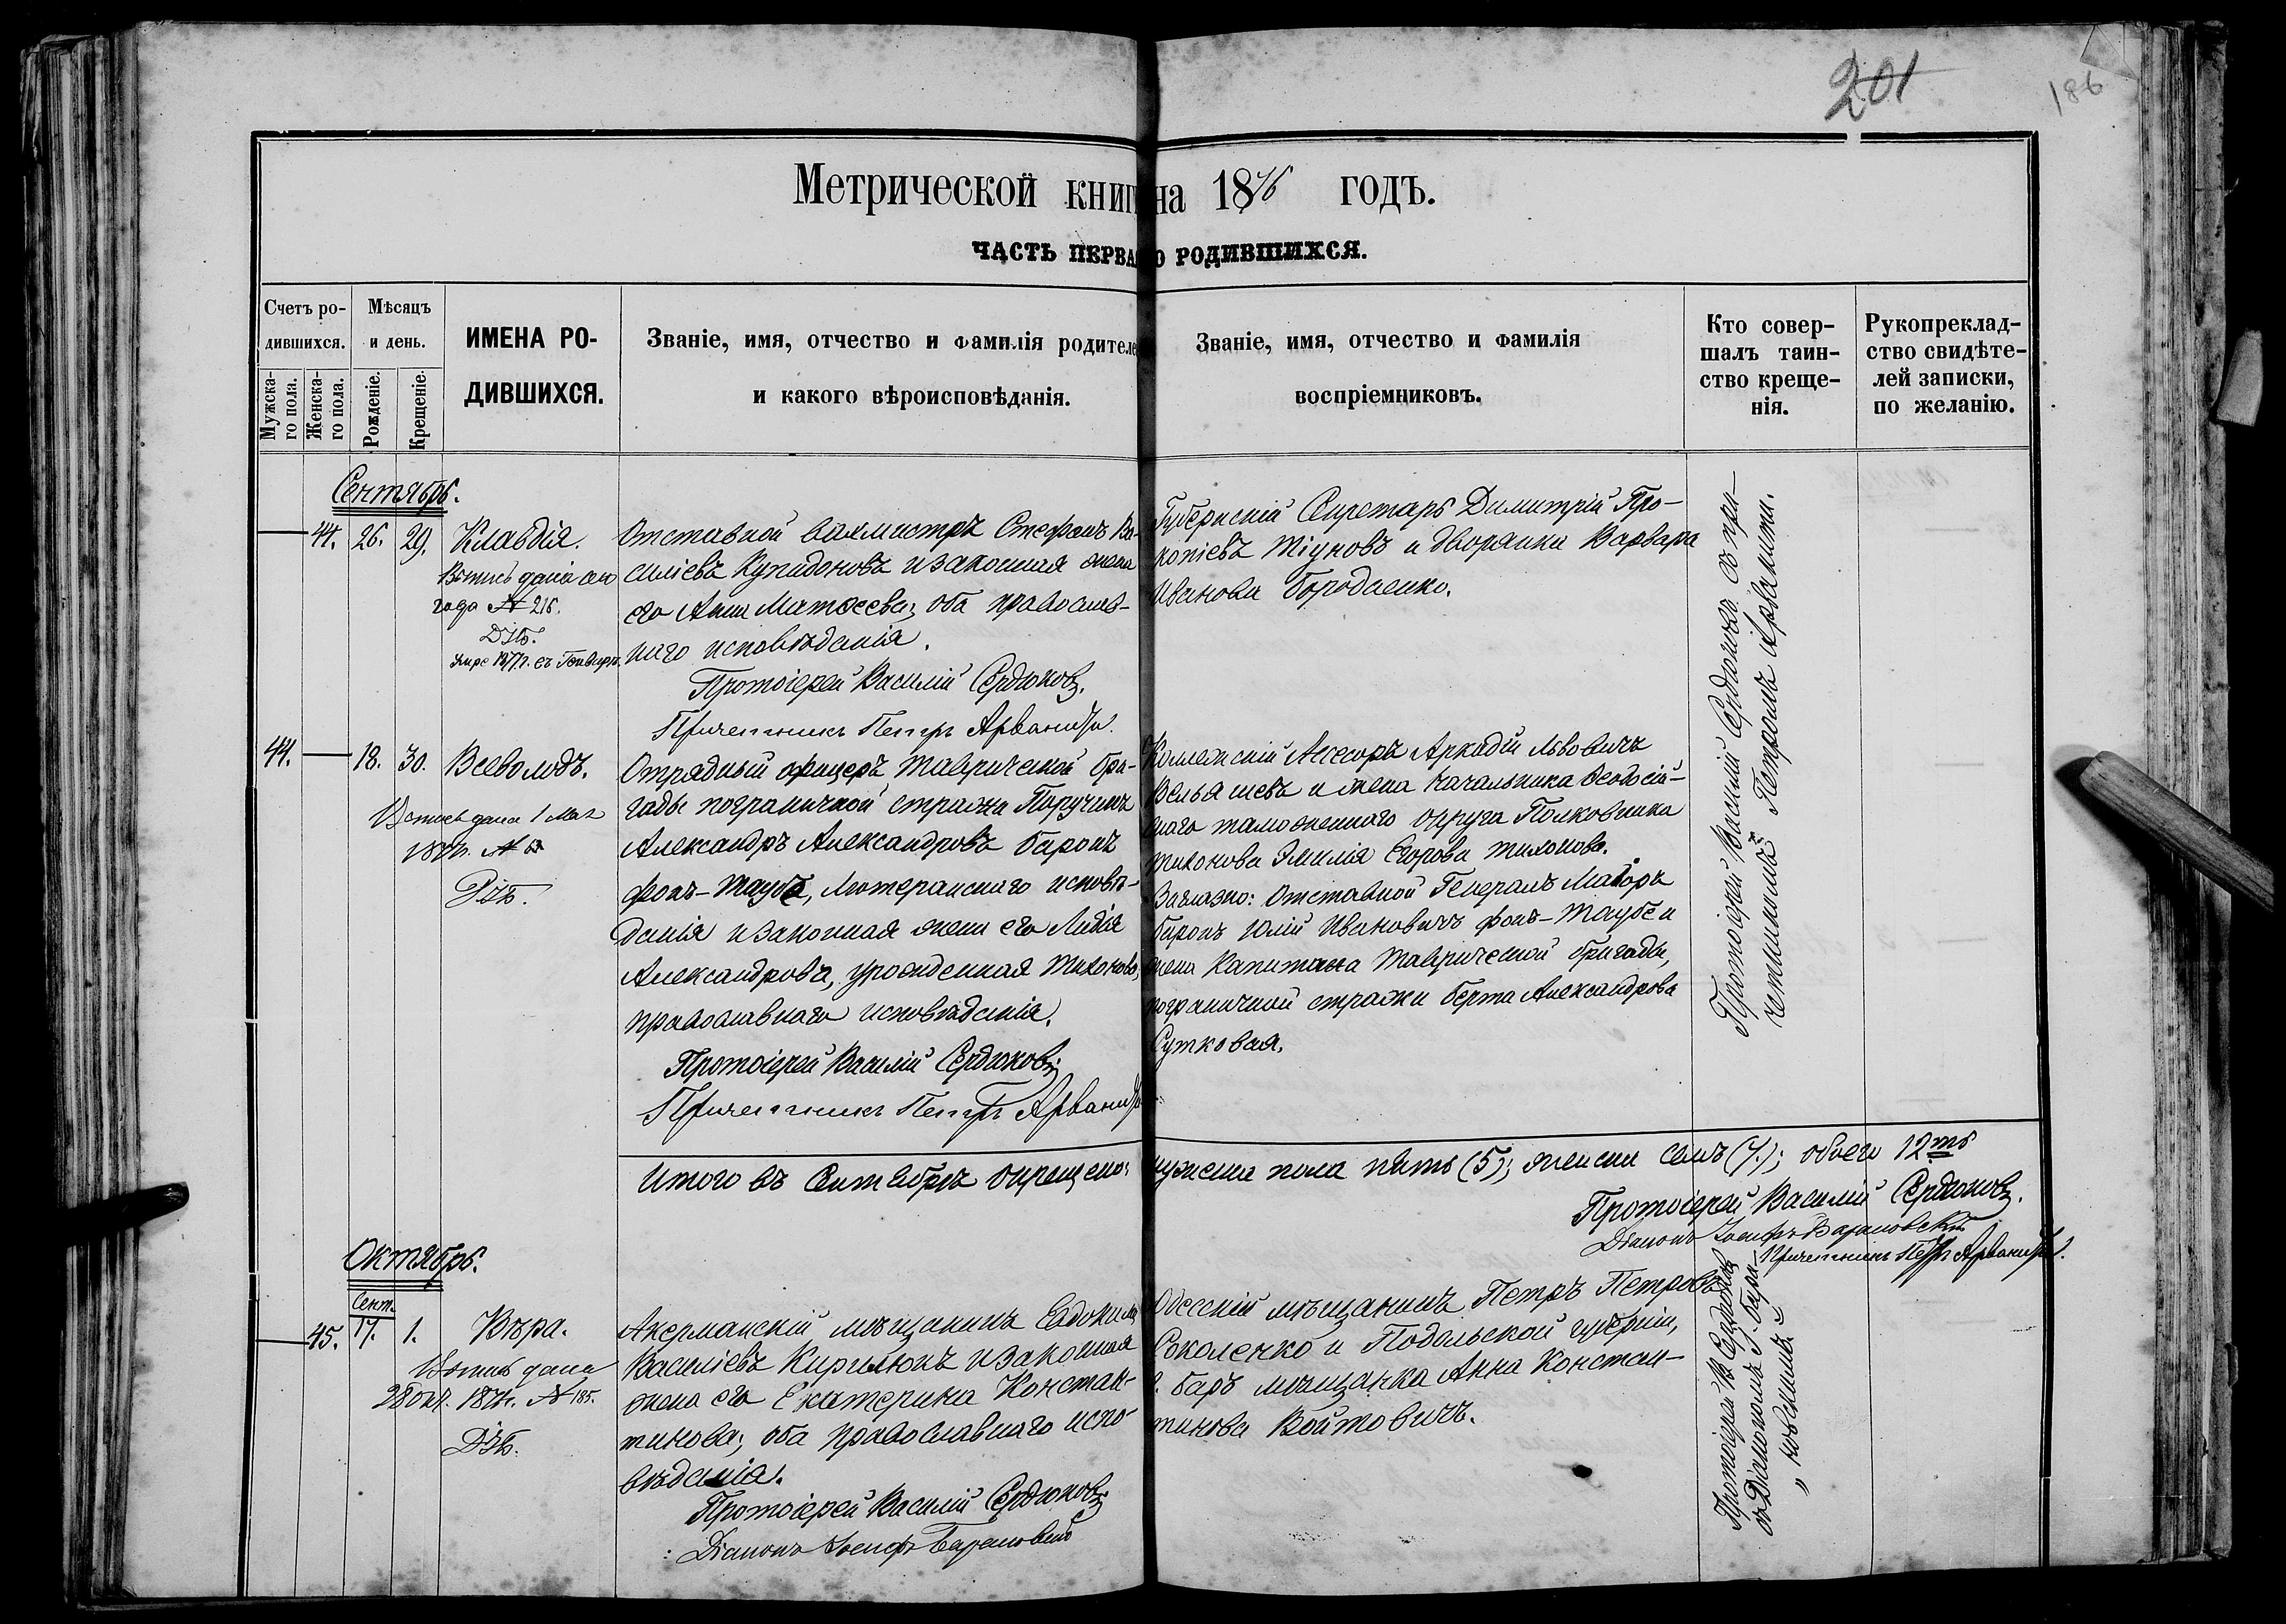 201
186
Метрической книг на 1876 годъ.
ЧАСТЬ ПЕРВА О РОДИВШИХСЯ.
Счетъ ро-
дившихся.
Мужска-
го пола.
Женска-
го пола.
Мѣсяцъ
и день.
Рожденіе.
Крещеніе.
ИМЕНА РО-
ДИВШИХСЯ.
Званіе, имя, отчество и фамилія родителе
и какого вѣроисповѣданія.
Званіе, имя, отчество и фамилія
воспріемниковъ.
Кто совер-
шалъ таин-
ство креще-
нія.
Рукоприклад-
ство свидѣте-
лей записки,
по желанію.
Сентябрь.
44. 26. 29. Клавдія.
года № 216.
Отставной вахмистръ Стефанъ Ва-
силіевъ Купидоновъ и законная жена
его Анна Матѳеева, оба православ-
наго исповѣданія.
Протоіерей Василій Сердюковъ.
Причетникъ Петръ Арванити.
Губернскій Секретарь Димитрій Про-
копіевъ Тіуновъ и дворянка Варвара
Иванова Бородаенко.
Протоіерей Василій Сердюковъ съ при-
четникомъ Петромъ Арванити.
44. 18. 30. Всеволодъ.
Выпись дана 1 Мая
Отрядный офицеръ Таврической бри-
гады пограничной стражи Поручикъ
Александръ Александровъ баронъ
фонъ-Таубе, Лютеранскаго исповѣ-
данія и законная жена его Лидія
Александрова, урожденная Тихонова,
православнаго исповѣданія.
Протоіерей Василій Сердюковъ.
Причетникъ Петръ Арванити
Коллежскій Ассесоръ Аркадій Львовичъ
Вельяшевъ и жена Начальника Ѳеодосій-
скаго таможеннаго округа Полковника
Тихонова Эмилія Егорова Тихонова.
Заглазно: Отставной Генералъ Маіоръ
баронъ Юлій Ивановичъ фонъ-Таубе и
жена Капитана Таврической бригады,
пограничной стражи Берта Александрова
Сутковая.
Итого въ Сентябрѣ окрещено: мужеска пола пять (5); женска семь (7.); обоего 12ть
Протоіерей Василій Сердюковъ.
Діаконъ Іосифъ Барановскій
Причетникъ Петръ Арванити.
Октябрь.
Сент.
45. 17. 1. Вѣра.
Выпись дана
№ 185.
Акерманскій мѣщанинъ Евдокимъ
Василіевъ Кирилюкъ и законная
жена его Екатерина Констан-
тинова; оба православнаго испо-
вѣданія.
Протоіерей Василій Сердюковъ
Діаконъ Іосифъ Барановскій
Одесскій мѣщанинъ Петръ Петровъ
Соколенко и Подольской губерніи,
г. Баръ мѣщанка Анна Констан-
тинова Войтовичъ.
Протоіерей В. Сердюковъ
съ Діакономъ І. Бара-
новскимъ